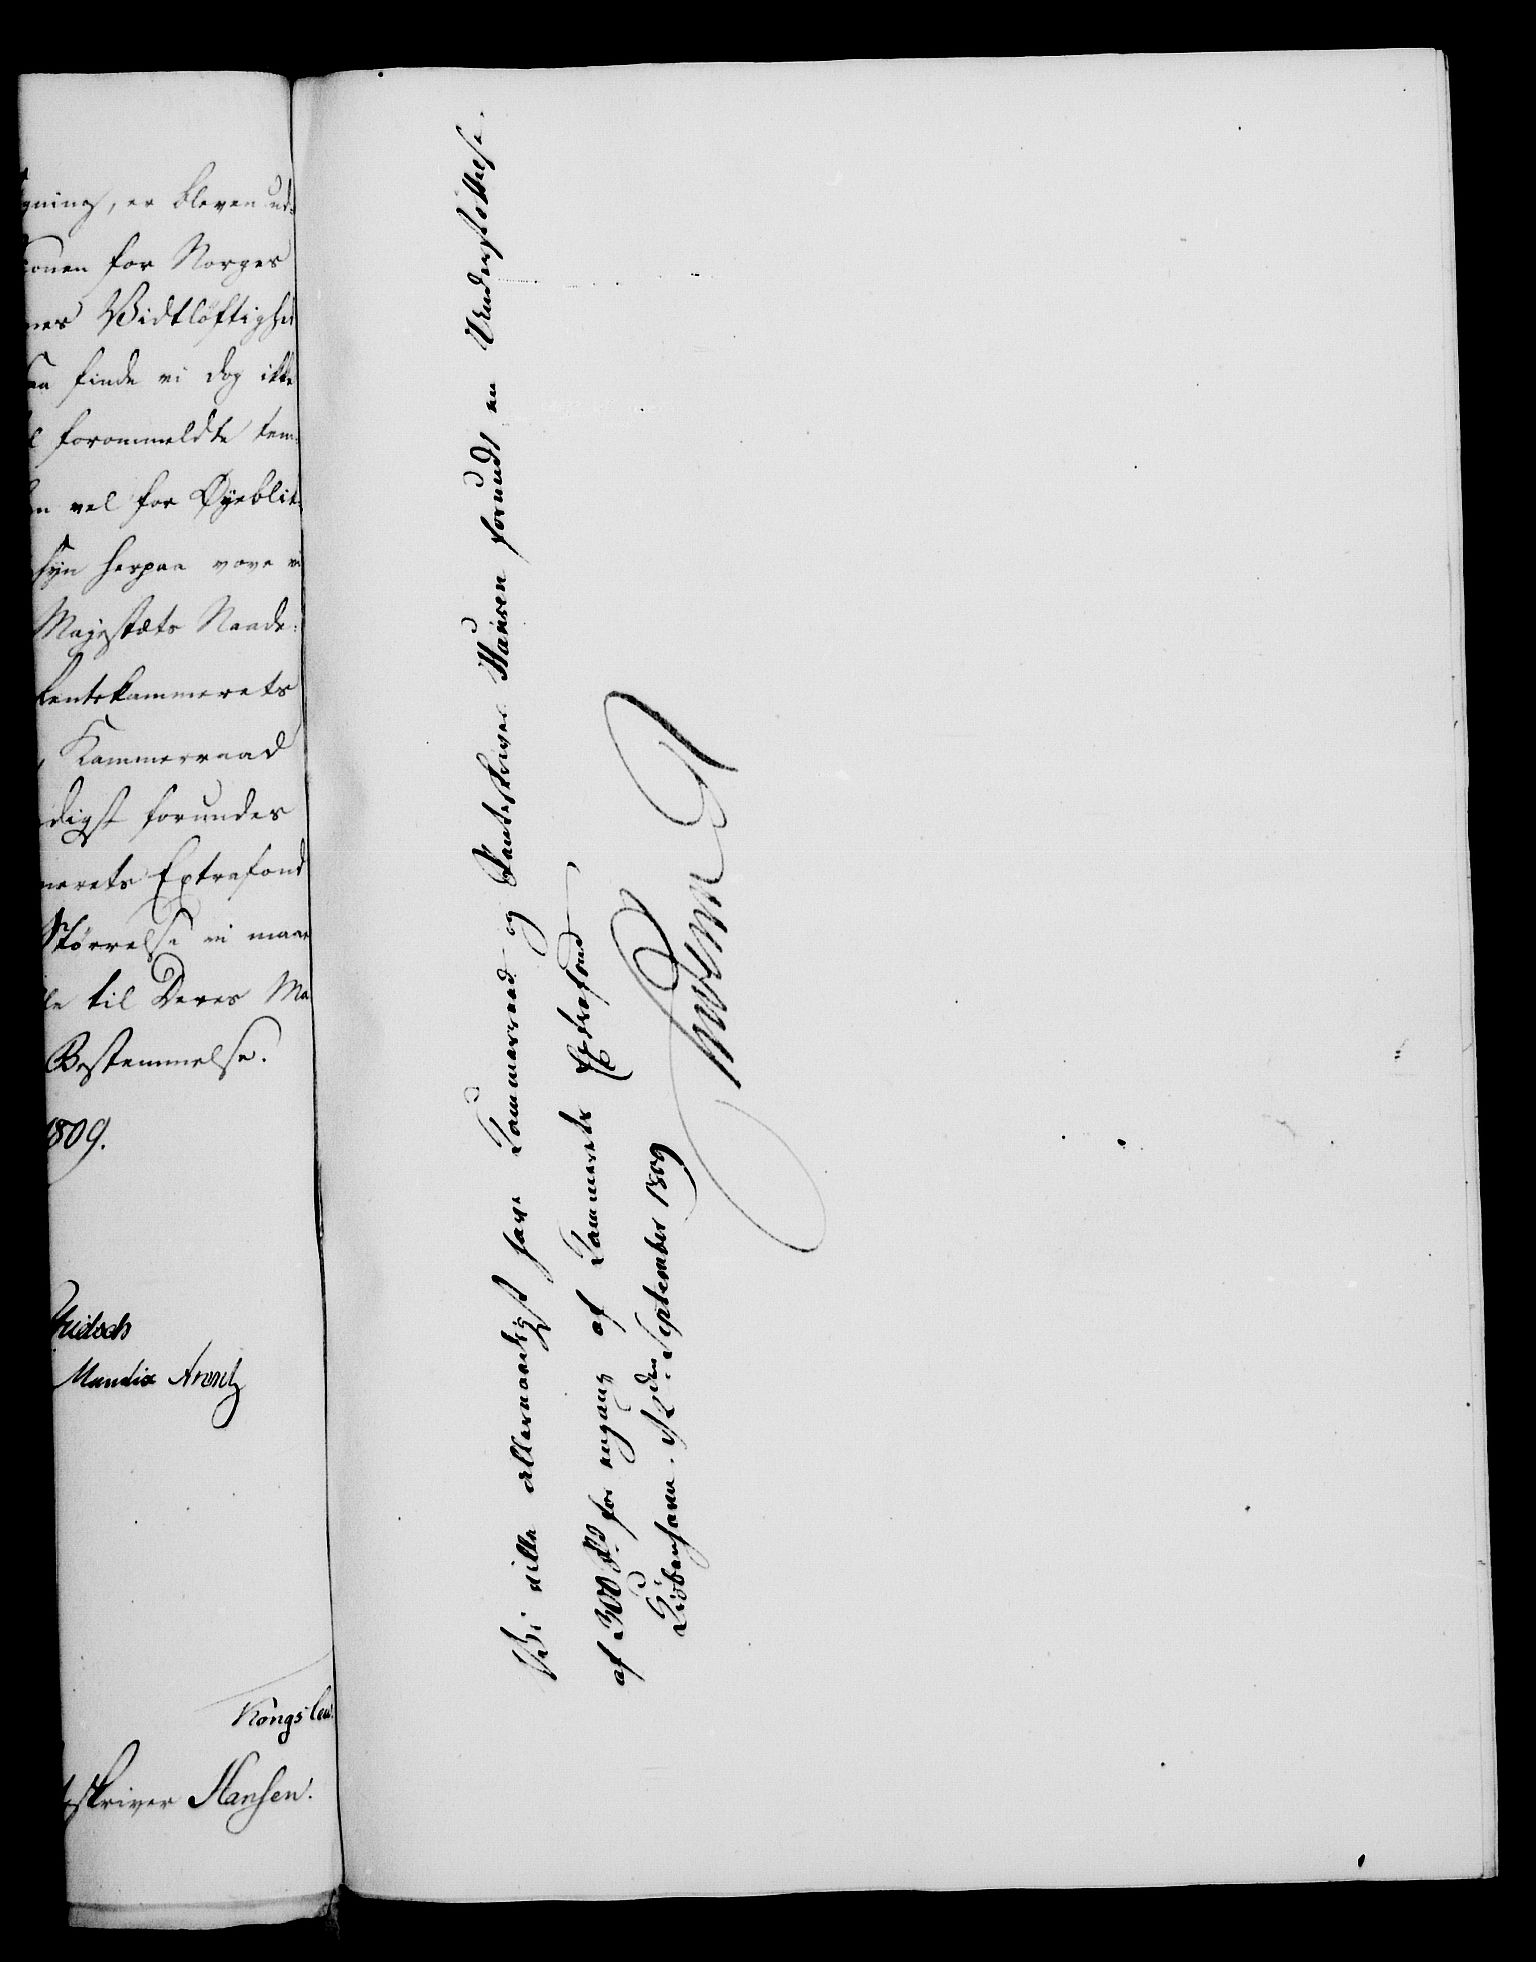 gning, er bleven ud-
ionen for Norges
nes Vidtløftighed
saa finde vi dog ikke
l forommeldte tem-
en vel for Øyeblik-
syn herpaa vove vi
Majestæts Naade:
Rentekammerets
Kammerraad
digst forundes
merets Extrafond
Størrelse vi maae
le til Deres Ma
Bestemmelse.
1809.
Mandix Arentz
Kongslew.
skriver Hansen.
Vi ville allernaadigst have Kammerraad og Renteskriver Hansen forundt en Understøttelse
af 300 Rd for engang af Kammerets Extrafond
Kiøbenhavn. d. 12den September 1809
Frederik R